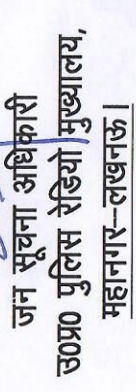 जन सूचना अधिकारी
उ0प्र0 पुलिस रेडियो मुख्यालय,
महानगर–लखनऊ।